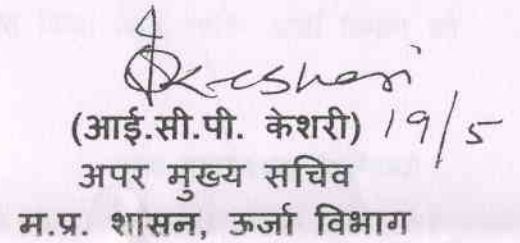 Keshari
(आई.सी.पी. केशरी) 19/5
अपर मुख्य सचिव
म.प्र. शासन, ऊर्जा विभाग